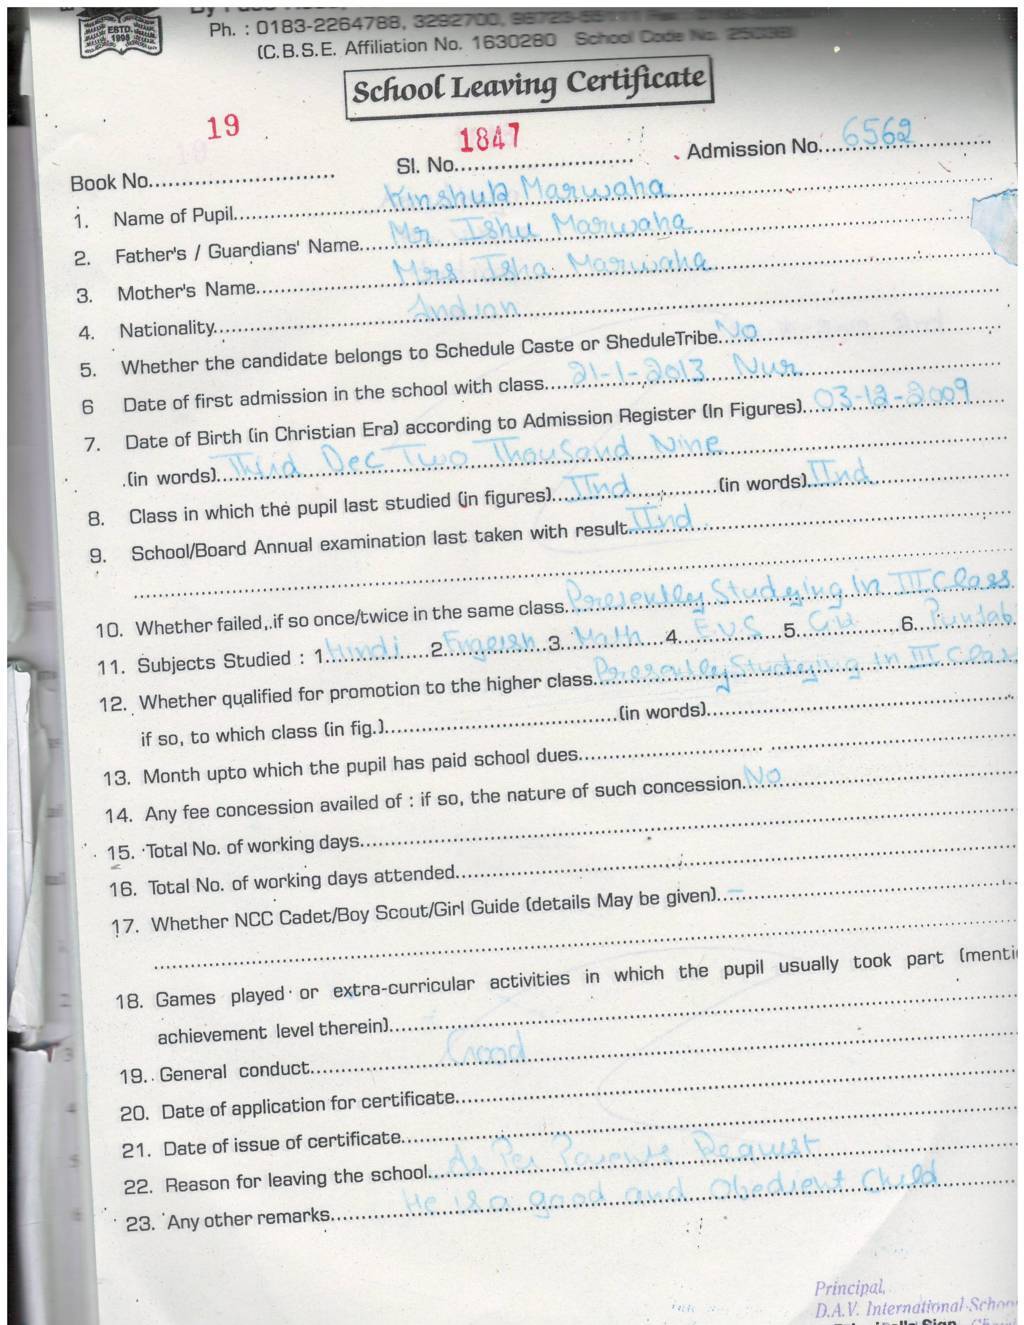 ESTD.
1998
Ph. : 0183-2264788, 3292700,
(C.B.S.E. Affiliation No. 1630280 School Code No.
School Leaving Certificate
Book No. 19 Sl. No. 1847 Admission No. 6562
1. Name of Pupil Kinshuk Marwaha
2. Father's / Guardians' Name Mr Ishu Marwaha
3. Mother's Name Mrs Isha Marwaha
4. Nationality Indian
5. Whether the candidate belongs to Schedule Caste or SheduleTribe No
6 Date of first admission in the school with class 21-1-2013 Nur
7. Date of Birth (in Christian Era) according to Admission Register (In Figures) 03-12-2009
(in words) Third Dec Two Thousand Nine
8. Class in which the pupil last studied (in figures) IInd (in words) IInd
9. School/Board Annual examination last taken with result IInd
10. Whether failed, if so once/twice in the same class Presently Studying in III Class
11. Subjects Studied : 1. Hindi 2. English 3. Math 4. E.V.S 5. 6. Punjabi
12. Whether qualified for promotion to the higher class Presently Studying in III Class
if so, to which class (in fig.) (in words)
13. Month upto which the pupil has paid school dues
14. Any fee concession availed of : if so, the nature of such concession No
15. Total No. of working days
16. Total No. of working days attended
17. Whether NCC Cadet/Boy Scout/Girl Guide (details May be given) -
18. Games played or extra-curricular activities in which the pupil usually took part (menti
achievement level therein)
19. General conduct Good
20. Date of application for certificate
21. Date of issue of certificate
22. Reason for leaving the school As Per Parents Request
23. Any other remarks He is a good and Obedient Child
Principal,
D.A.V. International School